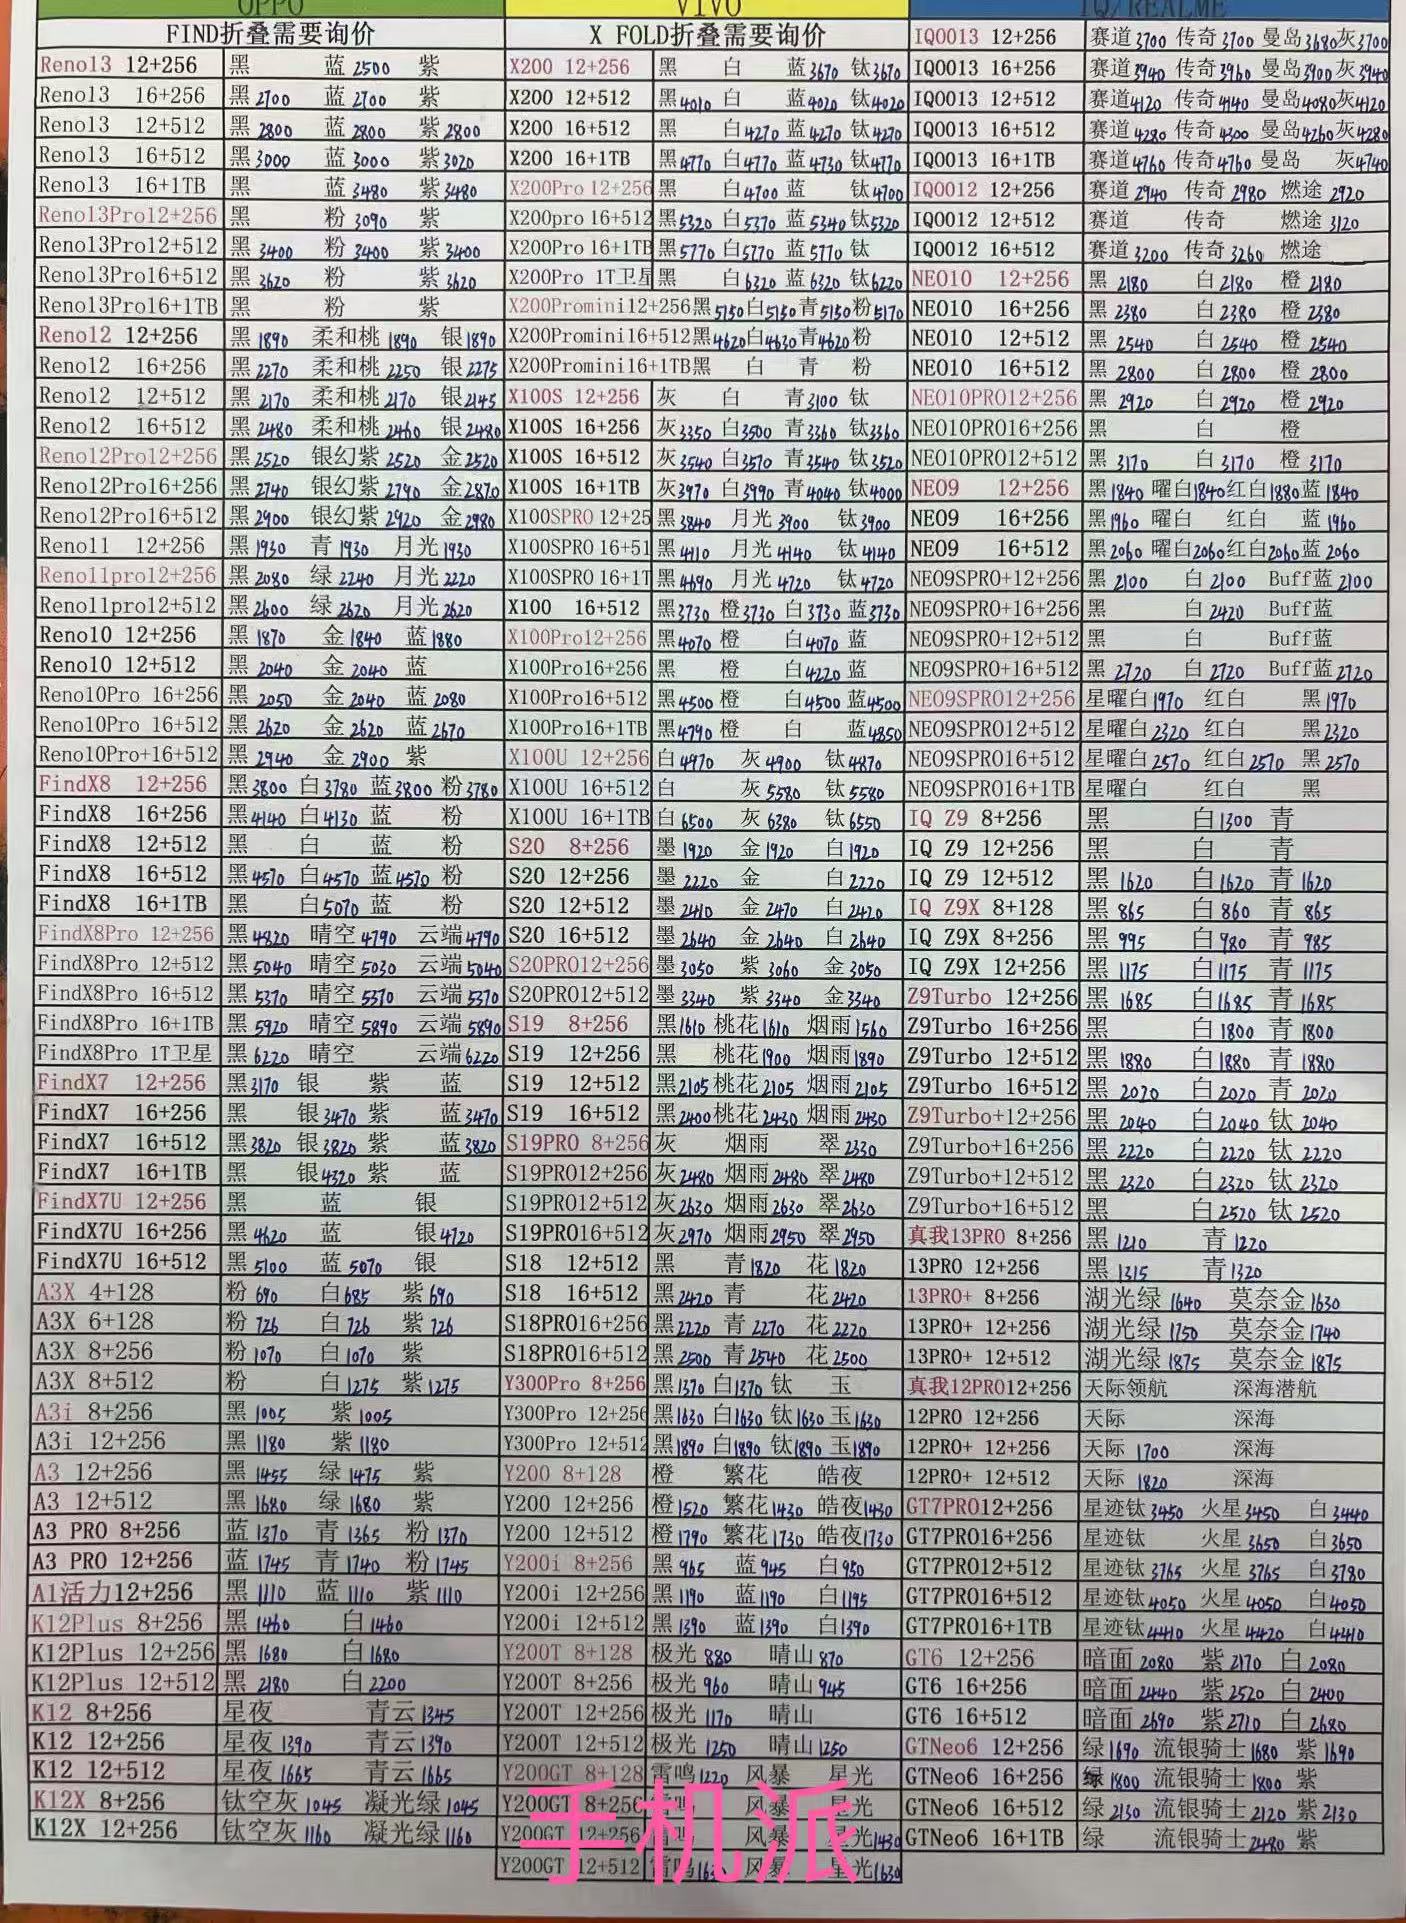 OPPO
FIND折叠需要询价
Reno13 12+256 黑 蓝2500 紫
Reno13 16+256 黑2700 蓝2700 紫
Reno13 12+512 黑2800 蓝2800 紫2800
Reno13 16+512 黑3000 蓝3000 紫3020
Reno13 16+1TB 黑 蓝3480 紫3480
Reno13Pro12+256 黑 粉3090 紫
Reno13Pro12+512 黑3400 粉3400 紫3400
Reno13Pro16+512 黑3620 粉 紫3620
Reno13Pro16+1TB 黑 粉 紫
Reno12 12+256 黑1890 柔和桃1890 银1890
Reno12 16+256 黑2270 柔和桃2250 银2275
Reno12 12+512 黑2170 柔和桃2170 银2145
Reno12 16+512 黑2480 柔和桃2460 银2480
Reno12Pro12+256 黑2520 银幻紫2520 金2520
Reno12Pro16+256 黑2740 银幻紫2790 金2870
Reno12Pro16+512 黑2900 银幻紫2920 金2980
Reno11 12+256 黑1930 青1930 月光1930
Reno11pro12+256 黑2080 绿2240 月光2220
Reno11pro12+512 黑2600 绿2620 月光2620
Reno10 12+256 黑1870 金1840 蓝1880
Reno10 12+512 黑2040 金2040 蓝
Reno10Pro 16+256 黑2050 金2040 蓝2080
Reno10Pro 16+512 黑2620 金2620 蓝2670
Reno10Pro+16+512 黑2940 金2900 紫
FindX8 12+256 黑3800 白3780 蓝3800 粉3780
FindX8 16+256 黑4140 白4130 蓝 粉
FindX8 12+512 黑 白 蓝 粉
FindX8 16+512 黑4570 白4570 蓝4570 粉
FindX8 16+1TB 黑 白5070 蓝 粉
FindX8Pro 12+256 黑4820 晴空4790 云端4790
FindX8Pro 12+512 黑5040 晴空5030 云端5040
FindX8Pro 16+512 黑5370 晴空5370 云端5370
FindX8Pro 16+1TB 黑5920 晴空5890 云端5890
FindX8Pro 1T卫星 黑6220 晴空 云端6220
FindX7 12+256 黑3170 银 紫 蓝
FindX7 16+256 黑 银3470 紫 蓝3470
FindX7 16+512 黑3820 银3820 紫 蓝3820
FindX7 16+1TB 黑 银4320 紫 蓝
FindX7U 12+256 黑 蓝 银
FindX7U 16+256 黑4620 蓝 银4720
FindX7U 16+512 黑5100 蓝5070 银
A3X 4+128 粉690 白685 紫690
A3X 6+128 粉726 白726 紫726
A3X 8+256 粉1070 白1070 紫
A3X 8+512 粉 白1275 紫1275
A3i 8+256 黑1005 紫1005
A3i 12+256 黑1180 紫1180
A3 12+256 黑1455 绿1475 紫
A3 12+512 黑1680 绿1680 紫
A3 PRO 8+256 蓝1370 青1365 粉1370
A3 PRO 12+256 蓝1745 青1740 粉1745
A1活力12+256 黑1110 蓝1110 紫1110
K12Plus 8+256 黑1460 白1460
K12Plus 12+256 黑1680 白1680
K12Plus 12+512 黑2180 白2200
K12 8+256 星夜 青云1345
K12 12+256 星夜1390 青云1390
K12 12+512 星夜1665 青云1665
K12X 8+256 钛空灰1045 凝光绿1045
K12X 12+256 钛空灰1160 凝光绿1160
VIVO
X FOLD折叠需要询价
X200 12+256 黑 白 蓝3670 钛3670
X200 12+512 黑4010 白 蓝4020 钛4020
X200 16+512 黑 白4270 蓝4270 钛4270
X200 16+1TB 黑4770 白4770 蓝4730 钛4770
X200Pro 12+256 黑 白4700 蓝 钛4700
X200pro 16+512 黑5320 白5370 蓝5340 钛5320
X200Pro 16+1TB 黑5770 白5770 蓝5770 钛
X200Pro 1T卫星 黑 白6320 蓝6320 钛6220
X200Promini12+256 黑5150 白5150 青5150 粉5170
X200Promini16+512 黑4620 白4630 青4620 粉
X200Promini16+1TB 黑 白 青 粉
X100S 12+256 灰 白 青3100 钛
X100S 16+256 灰3350 白3500 青3360 钛3360
X100S 16+512 灰3540 白3570 青3540 钛3520
X100S 16+1TB 灰3970 白3990 青4040 钛4000
X100SPRO 12+25 黑3840 月光3900 钛3900
X100SPRO 16+51 黑4110 月光4140 钛4140
X100SPRO 16+1T 黑4690 月光4720 钛4720
X100 16+512 黑3730 橙3730 白3730 蓝3730
X100Pro12+256 黑4070 橙 白4070 蓝
X100Pro16+256 黑 橙 白4220 蓝
X100Pro16+512 黑4500 橙 白4500 蓝4500
X100Pro16+1TB 黑4790 橙 白 蓝4850
X100U 12+256 白4970 灰4900 钛4870
X100U 16+512 白 灰5580 钛5580
X100U 16+1TB 白6500 灰6380 钛6550
S20 8+256 墨1920 金1920 白1920
S20 12+256 墨2220 金 白2220
S20 12+512 墨2410 金2470 白2420
S20 16+512 墨2640 金2640 白2640
S20PRO12+256 墨3050 紫3060 金3050
S20PRO12+512 墨3340 紫3340 金3340
S19 8+256 黑1610 桃花1610 烟雨1560
S19 12+256 黑 桃花1900 烟雨1890
S19 12+512 黑2105 桃花2105 烟雨2105
S19 16+512 黑2400 桃花2430 烟雨2430
S19PRO 8+256 灰 烟雨 翠2330
S19PRO12+256 灰2480 烟雨2480 翠2480
S19PRO12+512 灰2630 烟雨2630 翠2630
S19PRO16+512 灰2970 烟雨2950 翠2950
S18 12+512 黑 青1820 花1820
S18 16+512 黑2420 青 花2420
S18PRO16+256 黑2220 青2270 花2220
S18PRO16+512 黑2500 青2540 花2500
Y300Pro 8+256 黑1370 白1370 钛 玉
Y300Pro 12+256 黑1630 白1630 钛1630 玉1630
Y300Pro 12+512 黑1890 白1890 钛1890 玉1890
Y200 8+128 橙 繁花 皓夜
Y200 12+256 橙1520 繁花1430 皓夜1430
Y200 12+512 橙1790 繁花1730 皓夜1730
Y200i 8+256 黑965 蓝945 白950
Y200i 12+256 黑1190 蓝1190 白1195
Y200i 12+512 黑1390 蓝1390 白1390
Y200T 8+128 极光880 晴山870
Y200T 8+256 极光960 晴山945
Y200T 12+256 极光1170 晴山
Y200T 12+512 极光1250 晴山1250
Y200GT 8+128 雷鸣1220 风暴 星光
Y200GT 8+256 风暴 星光
Y200GT 12+256 风暴 星光1430
Y200GT 12+512 雷鸣 风暴 星光1630
手机派
IQ/REALME
IQOO13 12+256 赛道3700 传奇3700 曼岛3680 灰3700
IQOO13 16+256 赛道3940 传奇3960 曼岛3900 灰3940
IQOO13 12+512 赛道4120 传奇4140 曼岛4080 灰4120
IQOO13 16+512 赛道4280 传奇4300 曼岛4260 灰4280
IQOO13 16+1TB 赛道4760 传奇4760 曼岛 灰4740
IQOO12 12+256 赛道2940 传奇2980 燃途2920
IQOO12 12+512 赛道 传奇 燃途3120
IQOO12 16+512 赛道3200 传奇3260 燃途
NEO10 12+256 黑2180 白2180 橙2180
NEO10 16+256 黑2380 白2380 橙2380
NEO10 12+512 黑2540 白2540 橙2540
NEO10 16+512 黑2800 白2800 橙2800
NEO10PRO12+256 黑2920 白2920 橙2920
NEO10PRO16+256 黑 白 橙
NEO10PRO12+512 黑3170 白3170 橙3170
NEO9 12+256 黑1840 曜白1840 红白1880 蓝1840
NEO9 16+256 黑1960 曜白 红白 蓝1960
NEO9 16+512 黑2060 曜白2060 红白2060 蓝2060
NEO9SPRO+12+256 黑2100 白2100 Buff蓝2100
NEO9SPRO+16+256 黑 白2420 Buff蓝
NEO9SPRO+12+512 黑 白 Buff蓝
NEO9SPRO+16+512 黑2720 白2720 Buff蓝2720
NEO9SPRO12+256 星曜白1970 红白 黑1970
NEO9SPRO12+512 星曜白2320 红白 黑2320
NEO9SPRO16+512 星曜白2570 红白2570 黑2570
NEO9SPRO16+1TB 星曜白 红白 黑
IQ Z9 8+256 黑 白1300 青
IQ Z9 12+256 黑 白 青
IQ Z9 12+512 黑1620 白1620 青1620
IQ Z9X 8+128 黑865 白860 青865
IQ Z9X 8+256 黑995 白980 青985
IQ Z9X 12+256 黑1175 白1175 青1175
Z9Turbo 12+256 黑1685 白1685 青1685
Z9Turbo 16+256 黑 白1800 青1800
Z9Turbo 12+512 黑1880 白1880 青1880
Z9Turbo 16+512 黑2020 白2020 青2020
Z9Turbo+12+256 黑2040 白2040 钛2040
Z9Turbo+16+256 黑2220 白2220 钛2220
Z9Turbo+12+512 黑2320 白2320 钛2320
Z9Turbo+16+512 黑 白2520 钛2520
真我13PRO 8+256 黑1210 青1220
13PRO 12+256 黑1315 青1320
13PRO+ 8+256 湖光绿1640 莫奈金1630
13PRO+ 12+256 湖光绿1750 莫奈金1740
13PRO+ 12+512 湖光绿1875 莫奈金1875
真我12PRO12+256 天际领航 深海潜航
12PRO 12+256 天际 深海
12PRO+ 12+256 天际1700 深海
12PRO+ 12+512 天际1820 深海
GT7PRO12+256 星迹钛3450 火星3450 白3440
GT7PRO16+256 星迹钛 火星3650 白3650
GT7PRO12+512 星迹钛3765 火星3765 白3780
GT7PRO16+512 星迹钛4050 火星4050 白4050
GT7PRO16+1TB 星迹钛4410 火星4420 白4410
GT6 12+256 暗面2080 紫2170 白2080
GT6 16+256 暗面2440 紫2520 白2400
GT6 16+512 暗面2690 紫2710 白2680
GTNeo6 12+256 绿1690 流银骑士1680 紫1690
GTNeo6 16+256 绿1800 流银骑士1800 紫
GTNeo6 16+512 绿2130 流银骑士2120 紫2130
GTNeo6 16+1TB 绿 流银骑士2480 紫